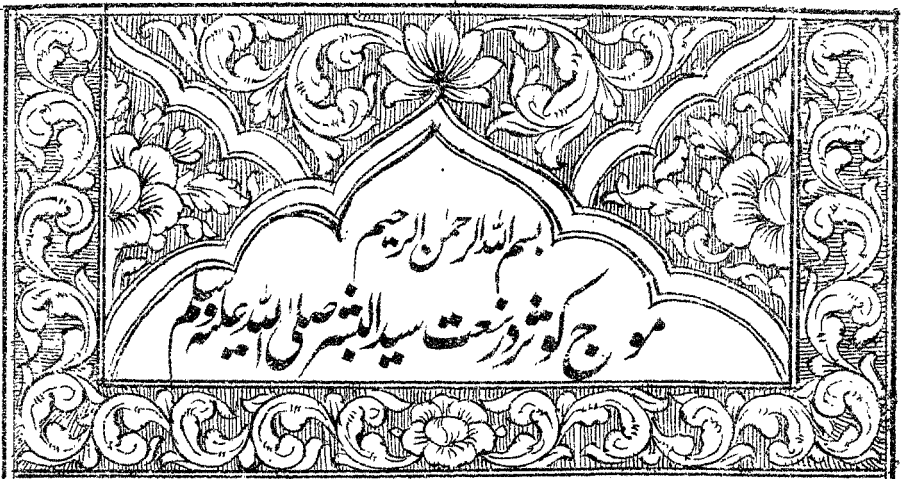 بسم الله الرحمن الرحیم
موج کوثر در نعت سید البشر صلی الله علیه وسلم